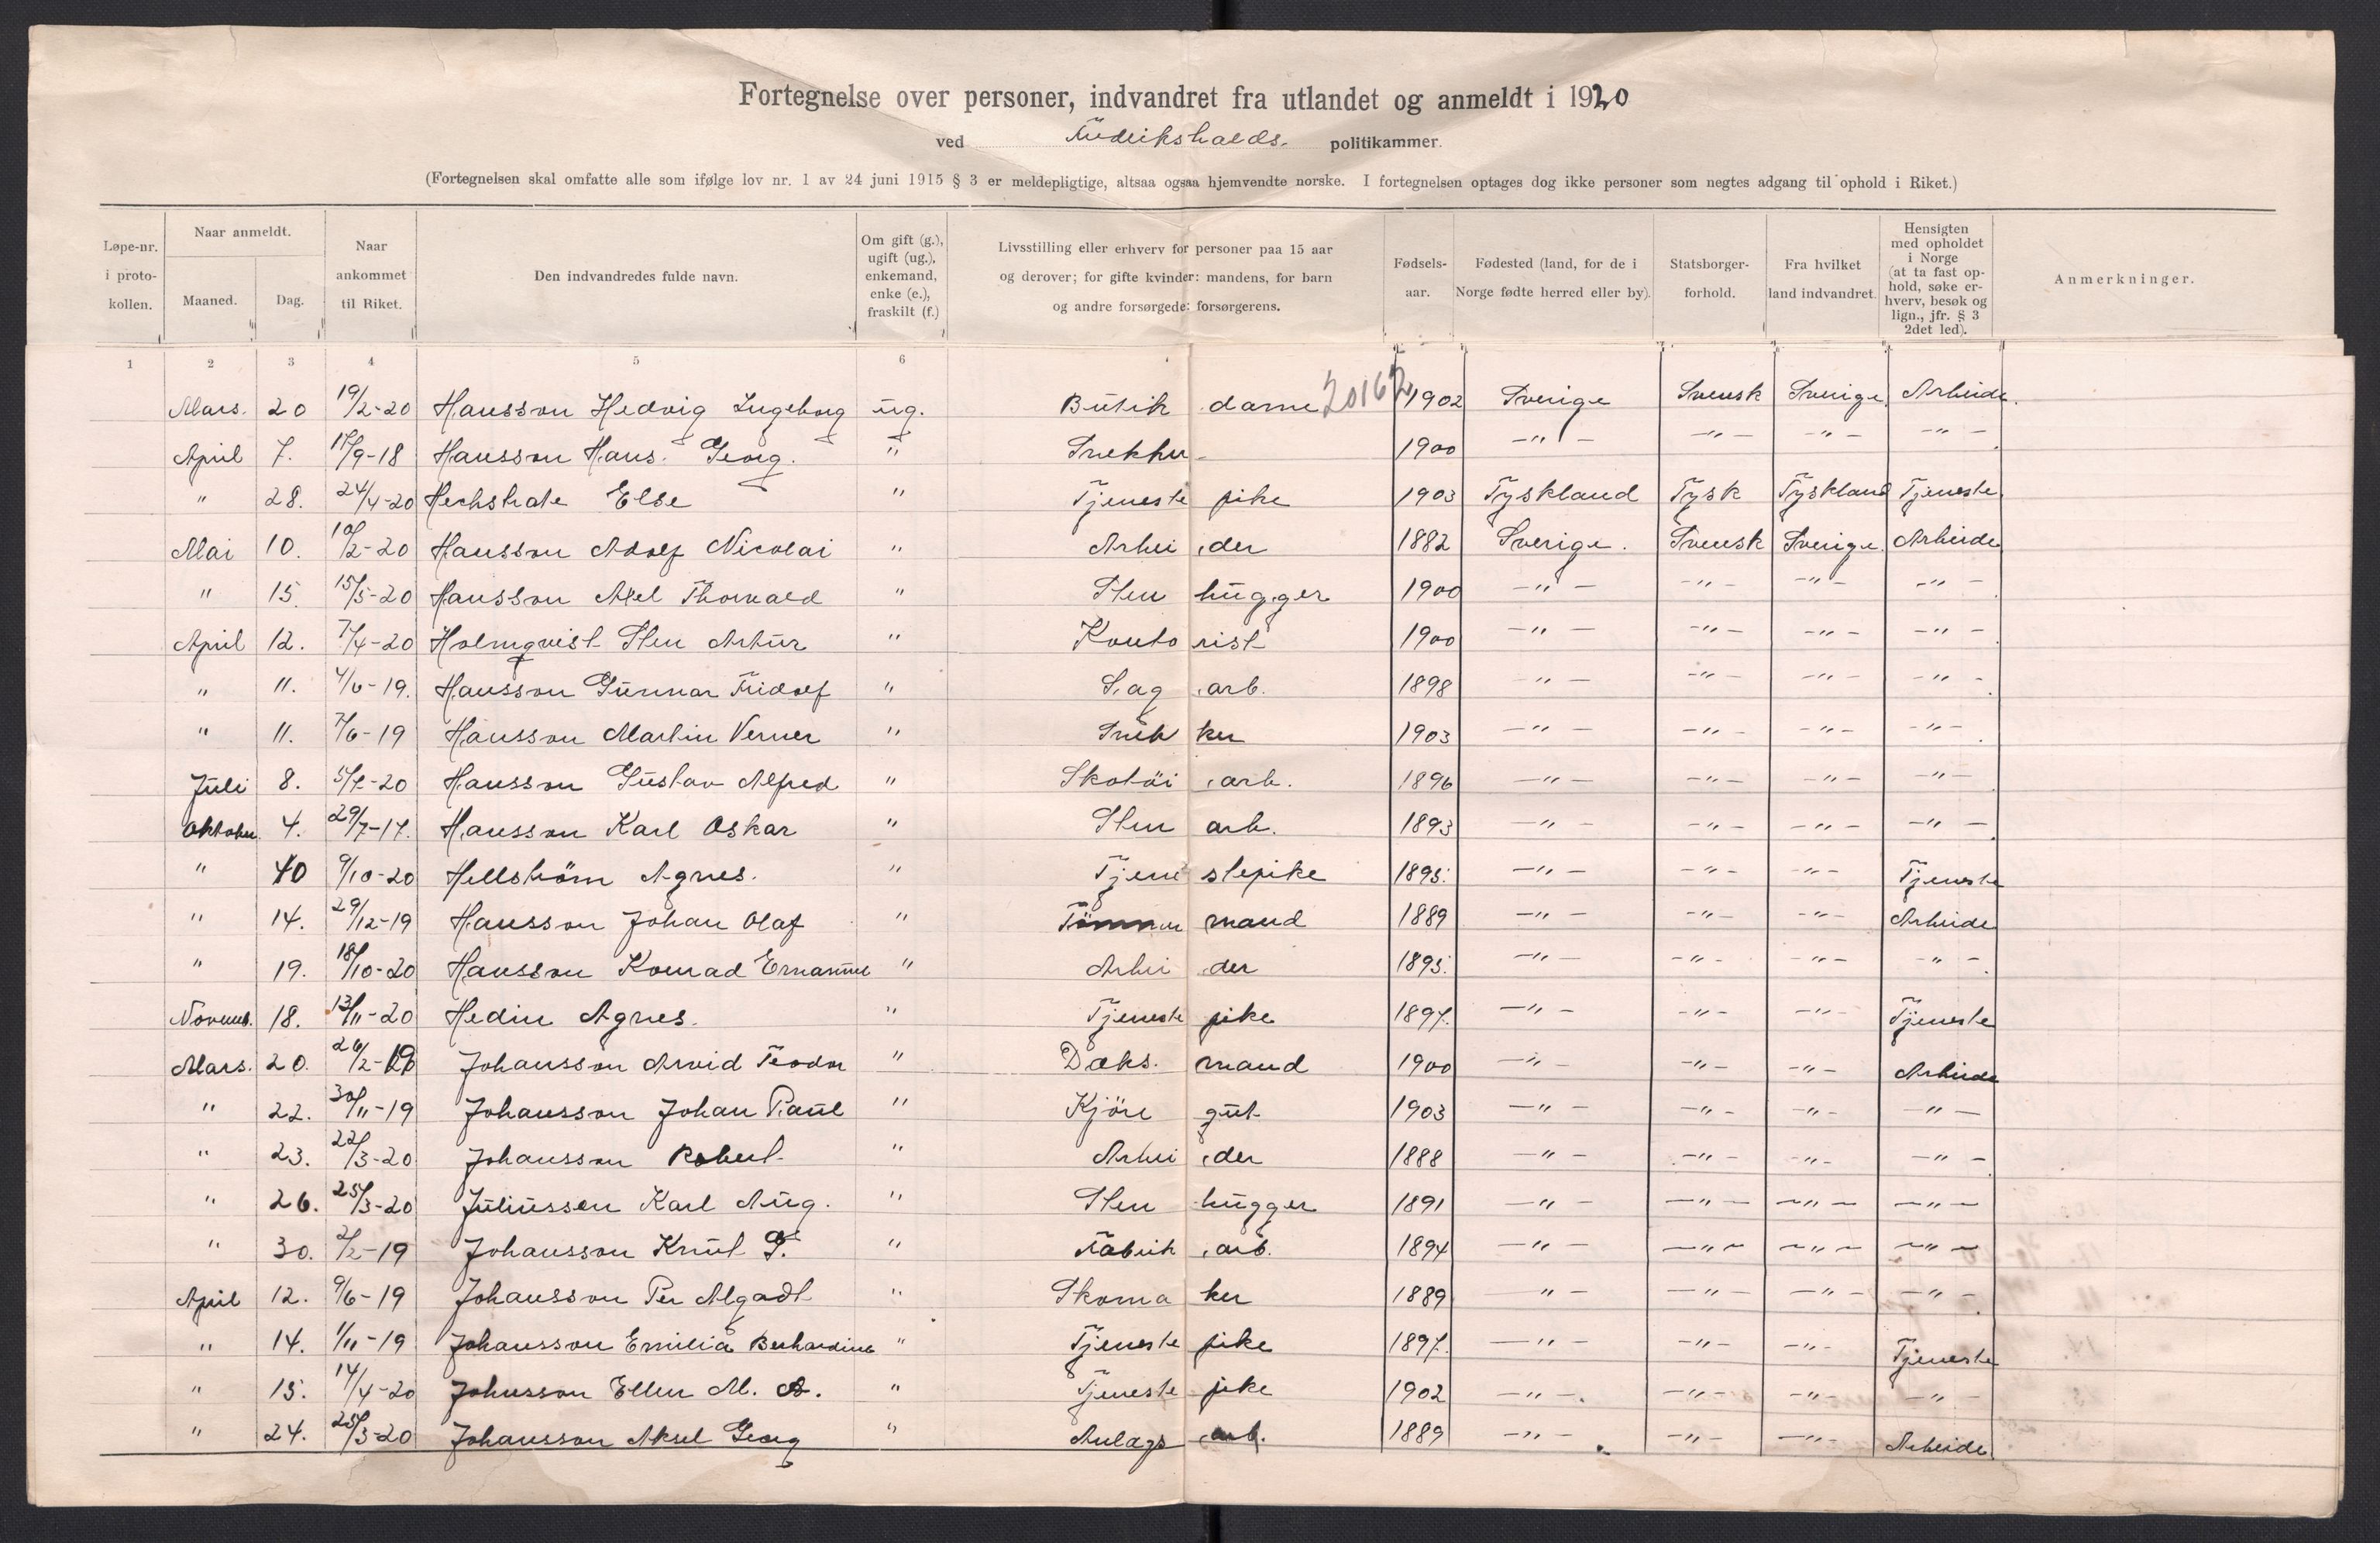 Fortegnelse over personer, indvandret fra utlandet og anmeldt i 1920
ved Fredrikshalds. politikammer.
(Fortegnelsen skal omfatte alle som ifølge lov nr. 1 av 24 juni 1915 § 3 er meldepligtige, altsaa ogsaa hjemvendte norske. I fortegnelsen optages dog ikke personer som negtes adgang til ophold i Riket.)
Løpe-nr. i proto-kollen. Naar anmeldt. Maaned. Dag. Naar ankommet til Riket. Den indvandredes fulde navn. Om gift (g.), ugift (ug.), enkemand, enke (e.), fraskilt (f.) Livsstilling eller erhverv for personer paa 15 aar og derover; for gifte kvinder: mandens, for barn og andre forsørgede: forsørgerens. Fødsels-aar. Fødested (land, for de i Norge fødte herred eller by). Statsborger-forhold. Fra hvilket land indvandret. Hensigten med opholdet i Norge (at ta fast op-hold, søke er-hverv, besøk og lign., jfr. § 3 2det led). Anmerkninger.
1 2 3 4 5 6
20162
Mars. 20 19/2-20 Hansson Hedvig Ingeborg ug. Butik dame 1902 Sverige Svensk Sverige Arbeide.
April 7. 17/9-18 Hansson Hans. Georg. " 1900 -"- -"- -"- -"-
" 28. 24/4-20 Else " Tjeneste pike 1903 Tyskland Tysk Tyskland Tjeneste.
Mai 10. 10/2-20 Hansson Adolf Nicolai " Arbei der 1882 Sverige. Svensk Sverige. Arbeide
" 15. 15/5-20 Hansson Axel Thorvald " Sten hugger 1900 -"- -"- -"- -"-
April 12. 7/4-20 Holmqvist Sten Artur " Konto rist 1900 -"- -"- -"- -"-
" 11. 4/6-19. Hansson Gunnar Fridolf " Sag arb. 1898 -"- -"- -"- -"-
" 11. 7/6-19 Hansson Martin Verner " Snek ker 1903 -"- -"- -"- -"-
Juli 8. 5/7-20 Hansson Gustav Alfred " Skotöi arb. 1896 -"- -"- -"- -"-
Oktober 4. 29/7-17. Hansson Karl Oskar " Sten arb. 1893 -"- -"- -"- -"-
" 10 9/10-20 Hellström Agnes. " Tjene stepike 1895. -"- -"- -"- Tjeneste
" 14. 29/12-19 Hansson Johan Olaf " Tömmer mand 1889 -"- -"- -"- Arbeide
" 19. 18/10-20 Hansson Konrad " Arbei der 1895. -"- -"- -"- -"-
Novemb. 18. 13/11-20 Hedin Agnes. " Tjeneste pike 1897. -"- -"- -"- Tjeneste
Mars. 20. 26/2-19 Johansson Arvid Teodor " Dæks. mand 1900 -"- -"- -"- Arbeide
" 22. 30/11-19 Johansson Johan Paul " Kjöre gut 1903 -"- -"- -"- -"-
" 23. 22/3-20 Johansson Robert " Arbei der 1888 -"- -"- -"- -"-
" 26. 25/3-20 Juliussen Karl Aug. " Sten hugger 1891 -"- -"- -"- -"-
" 30. 2/2-19 Johansson Knut G. " Fabrik arb. 1894 -"- -"- -"- -"-
April 12. 9/6-19 Johansson Per Algadt " Skoma ker 1889 "- -"- -"- -"-
" 14. 1/11-19 Johansson Emilia Berhardine " Tjeneste pike 1897. -"- -"- -"- Tjeneste
" 15. 14/4-20 Johnsson Ellen M. A. " Tjeneste pike 1902 -"- -"- -"- -"-
" 24. 25/3-20 Johansson Aksel Georg " Anlags arb. 1889 -"- -"- -"- Arbeide